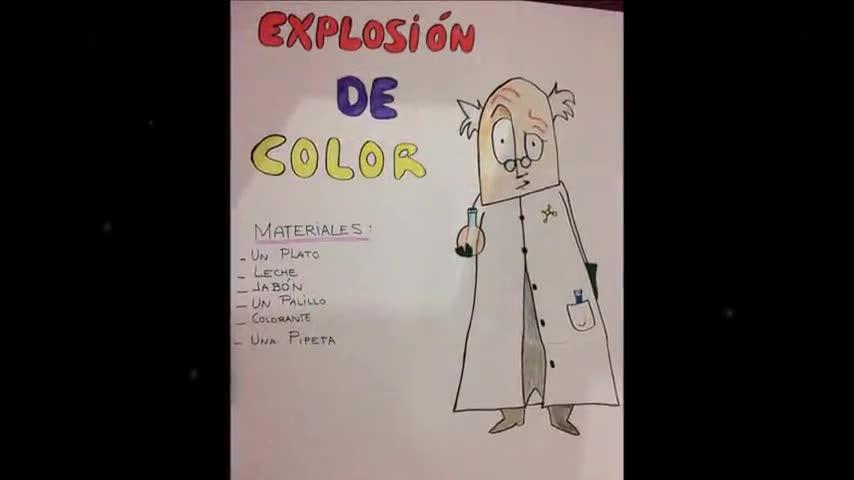 EXPLOSIÓN
DE
COLOR
MATERIALES:
- UN PLATO
- LECHE
- JABÓN
- UN PALILLO
- COLORANTE
- UNA PIPETA